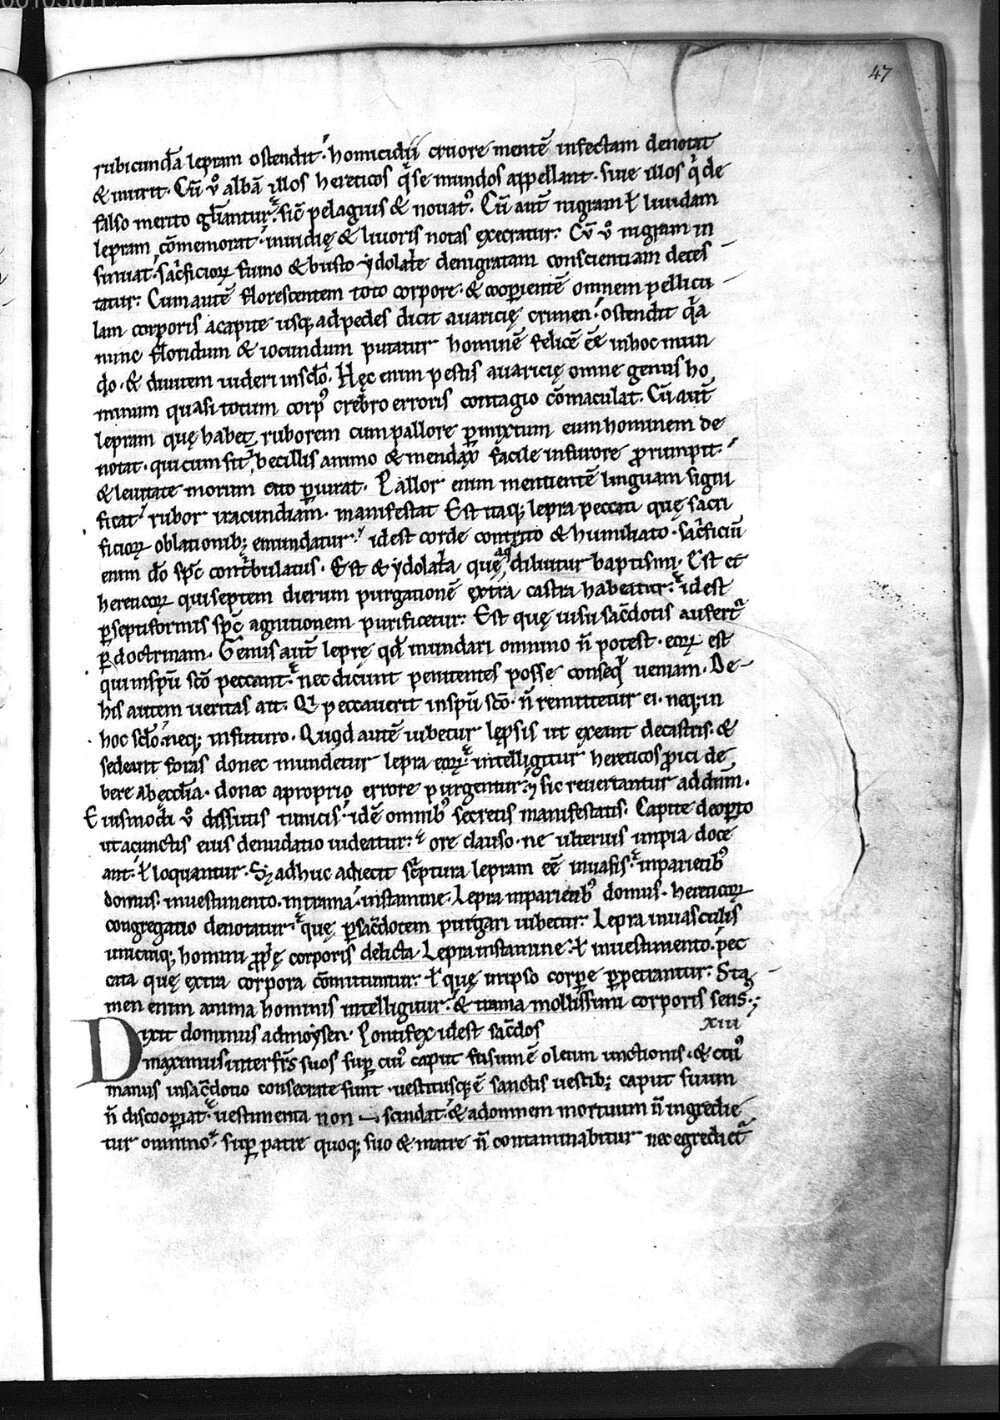 47
rubicundā lepram ostendit. homicidii cruore mentē infectam denotat
& inurit. Cū ꝟo albā illos hereticos q̄ se mundos appellant. siue illos q̄ de
falso merito gl̄iantur. sic̄ pelagius & nouatꝰ. Cū aut̄ nigram ł liuidam
lepram cōmemorat. inuidię & liuoris notas execratur. Cū ꝟo nigram in
sinuat. sac̄ficioꝝ fumo & busto ydolat̄e denigratam conscientiam detes
tatur. Cum autē florescentem toto corpore. & coop̄ientē omnem pellicu
lam corporis a capite usq; ad pedes dicit auaricię crimen. ostendit q̄a
nunc floridum & iocundum putatur hominē felicē ēē in hoc mun
do. & diuitem uideri in sc̄lo. Hęc enim pestis auaricię omne genus ho
minum quasi totum corpꝰ crebro erroris contagio cōmaculat. Cū aut̄
lepram quę habet ruborem cum pallore p̄mixtum eum hominem de
notat. qui cum sit ībecillis animo & mendax facile in furore prorumpit.
& leuitate morum cito p̄iurat. Pallor enim mentientē linguam signi
ficat. rubor iracundiam manifestat Est itaq; lepra peccati quę sacri
ficioꝝ oblationib; emundatur. idest corde contrito & humiliato. sac̄ficiū
enim dō sp̄c cont̄bulatus. Est & ydolat̄a quę aq̄ diluitur baptismi. Est et
hereticoꝝ qui septem dierum purgationē extra castra habeatur. idest
p̄ septiformis sp̄c agnitionem purificetur. Est quę uisu sac̄dotis aufert̄
p̄ doctrinam. Genus aut̄ leprę qd̄ mundari omnino n̄ potest. eoꝝ est
qui in sp̄u sc̄o peccant. nec dicunt penitentes posse conseq̄ ueniam. De
his autem ueritas ait. Qi peccauerit in sp̄u sc̄o. n̄ remittetur ei. neq; in
hoc sc̄lo. neq; in futuro. Quod autē iubetur lep̄sis ut exeant de castris. &
sedeant foras donec mundetur lepra eoꝝ intelligitur hereticos proici de
bere ab ęcc̄lia. donec a proprio errore purgentur. & sic reuertantur ad dn̄m.
Eiusmodi ꝟo dissutis tunicis. idē omnibꝰ secretis manifestatis. Capite deop̄to
ut a cunctis eius denudatio uideatur. & ore clauso. ne ulterius impia doce
ant. ł loquantur. Sʒ adhuc adiecit sc̄ptura lepram ēē in uasis. in parietibꝰ
domus. in uestimento. in trama. in stamine. Lepra in parietibꝰ domus. hereticoꝝ
congregatio denotatur. quę p̄ sac̄dotem purgari iubetur. Lepra in uasculis
unicuiq; homini prop̄ę corporis delicta. Lepra in stamine. ł in uestimento. pec
cata quę extra corpora cōmittuntur. ł quę in ipso corpe p̄petrantur. Sta
men enim anima hominis intelligitur. & trama mollissimi corporis sens;
XIII
Dixit dominus ad moysen. Pontifex idest sac̄dos
maximus inter fr̄s suos sup̄ cuiꝰ caput fusum ē oleum unctionis. & cuiꝰ
manus in sac̄dotio consecrate sunt. uestitusq; ē sanctis uestib; caput suum
n̄ discoop̄iat. uestimenta non scindat. & ad omnem mortuum n̄ ingredie
tur omnino. sup̄ patre quoq; suo & matre n̄ contaminabitur nec egrediet̄